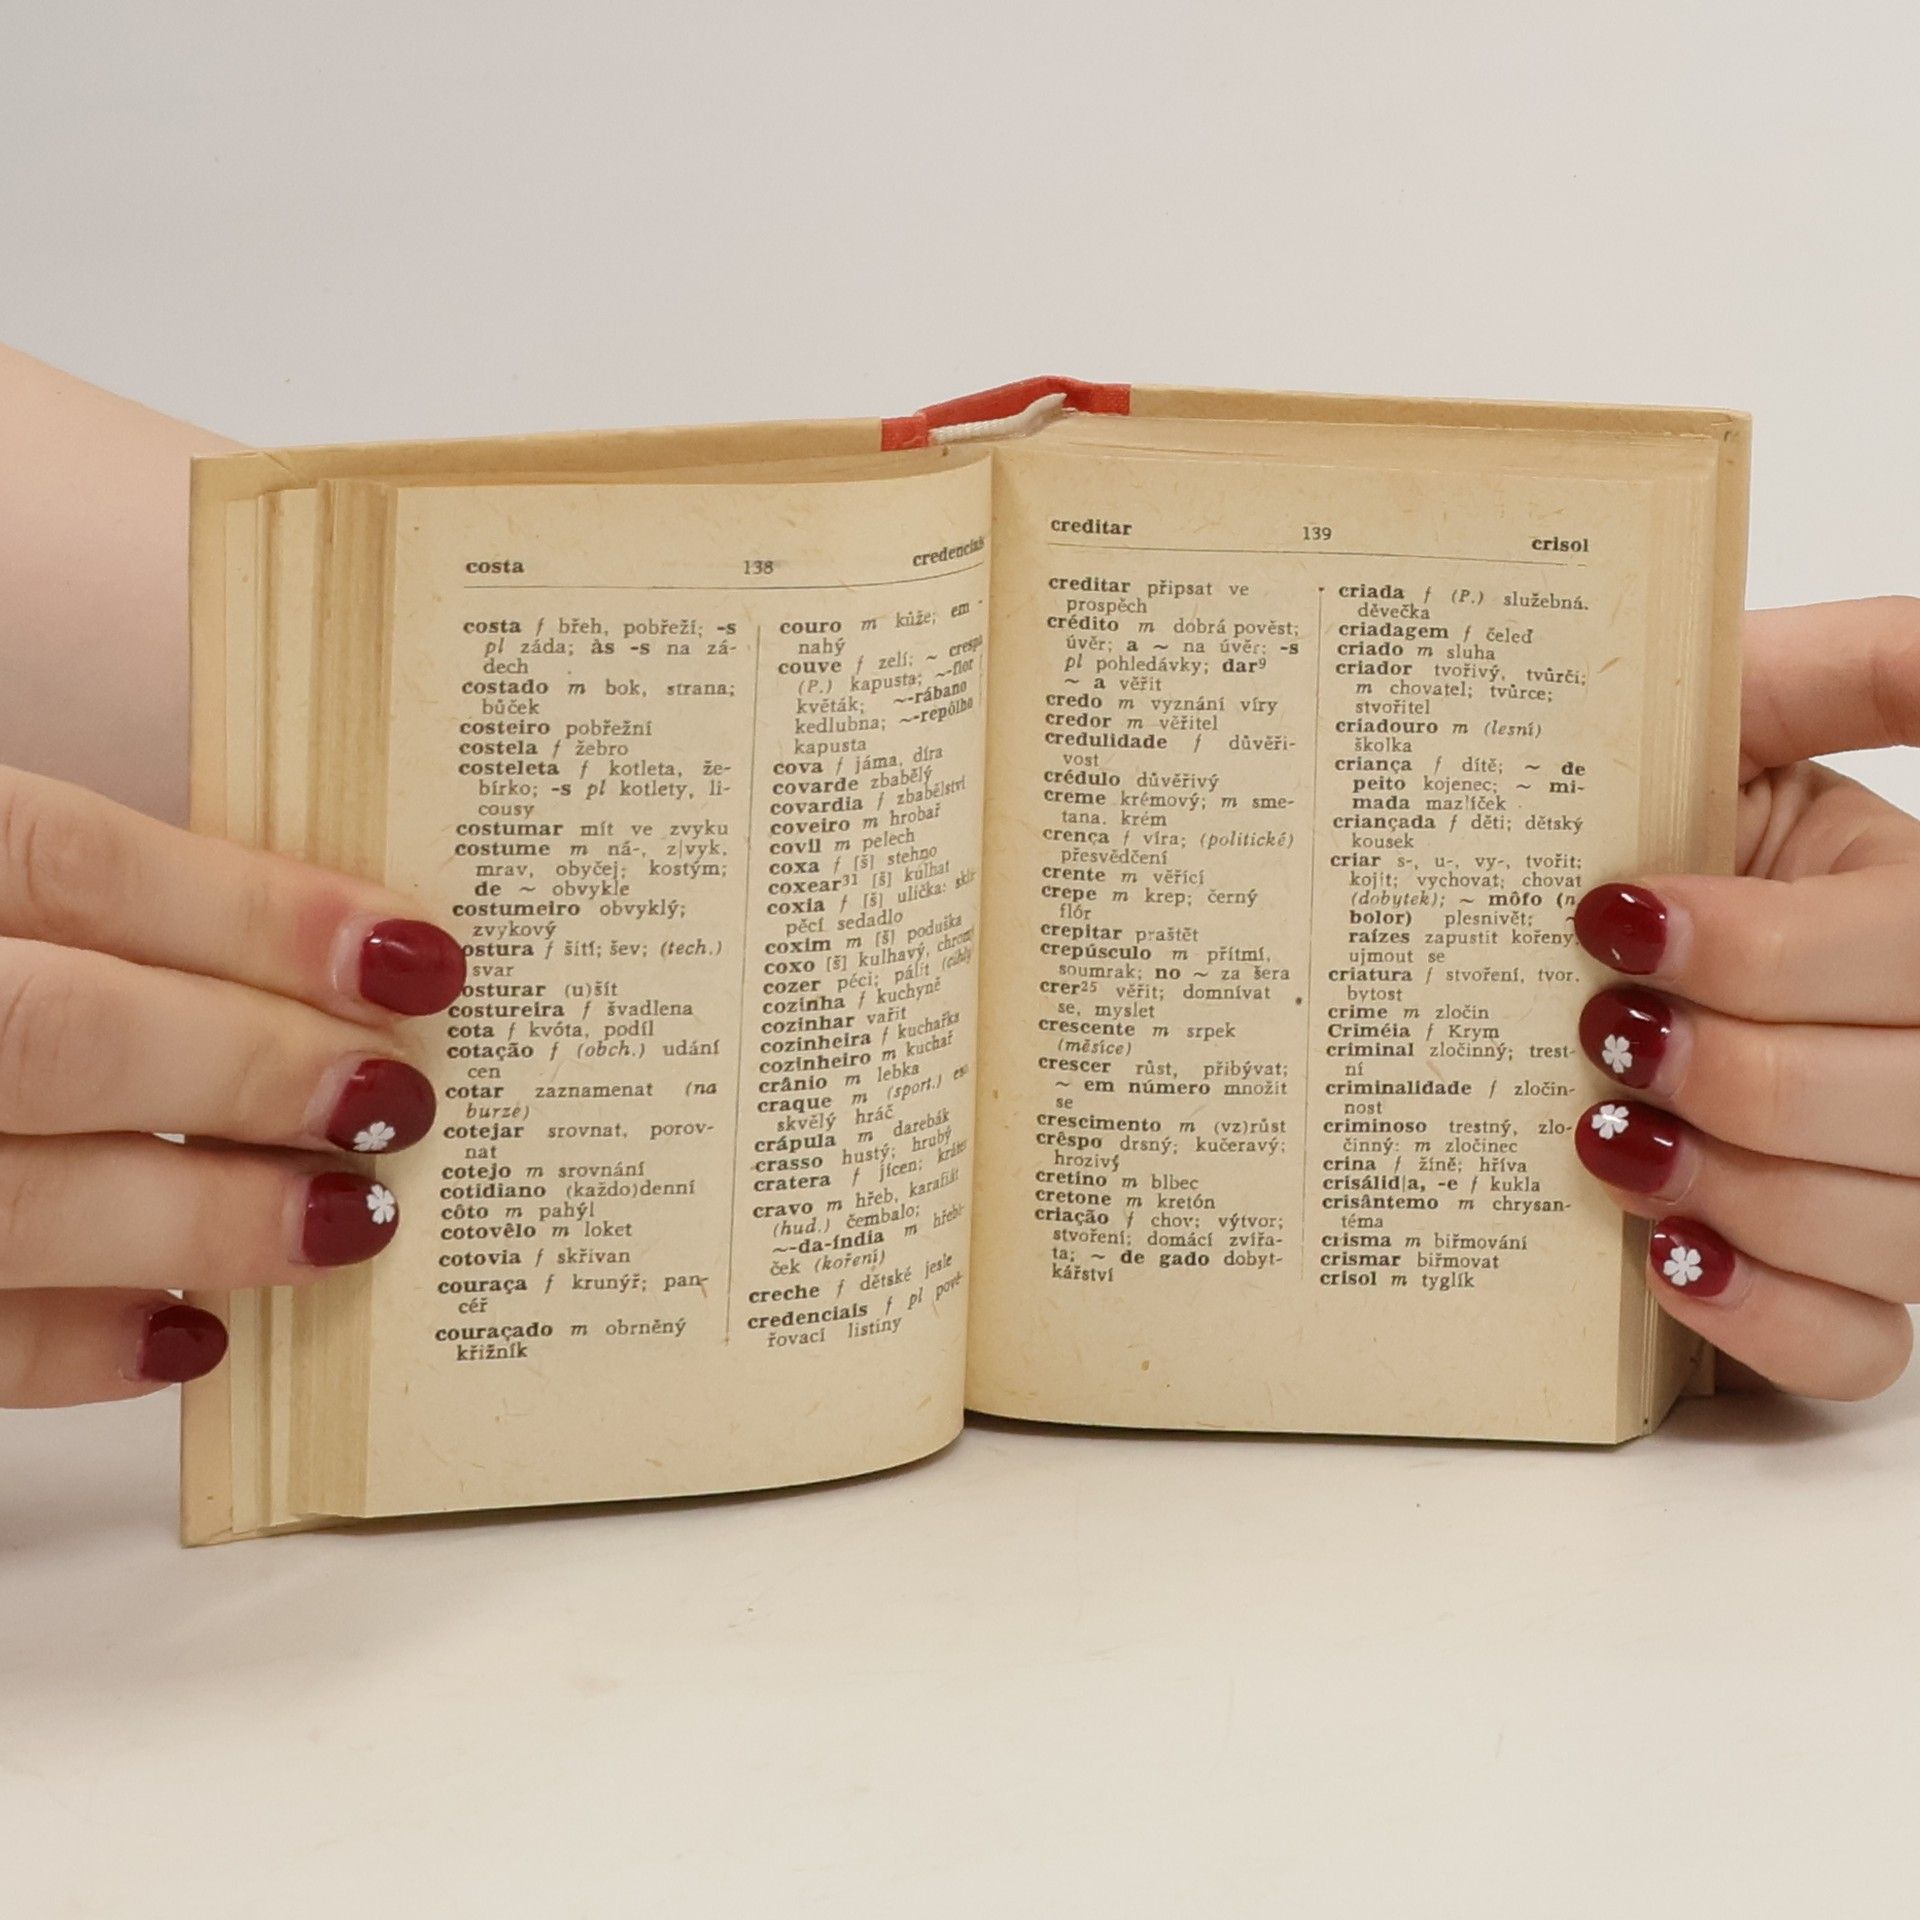 costa 138 credenciais
costa f břeh, pobřeží; -s
pl záda; às -s na zá-
dech
costado m bok, strana;
bůček
costeiro pobřežní
costela f žebro
costeleta f kotleta, že-
bírko; -s pl kotlety, li-
cousy
costumar mít ve zvyku
costume m ná-, z|vyk,
mrav, obyčej; kostým;
de ~ obvykle
costumeiro obvyklý;
zvykový
ostura f šití; šev; (tech.)
svar
osturar (u)šít
costureira f švadlena
cota f kvóta, podíl
cotação f (obch.) udání
cen
cotar zaznamenat (na
burze)
cotejar srovnat, porov-
nat
cotejo m srovnání
cotidiano (každo)denní
côto m pahýl
cotovêlo m loket
cotovia f skřivan
couraça f krunýř; pan-
céř
couraçado m obrněný
křižník
couro m kůže; em -
nahý
couve f zelí; ~ crespa
(P.) kapusta; ~-flor
květák; ~-rábano
kedlubna; ~-repôlho
kapusta
cova f jáma, díra
covarde zbabělý
covardia f zbabělství
coveiro m hrobař
covil m pelech
coxa f [š] stehno
coxear31 [š] kulhat
coxia f [š] ulička: sklá-
pěcí sedadlo
coxim m [š] poduška
coxo [š] kulhavý, chromý
cozer péci; pálit (cihly
cozinha f kuchyně
cozinhar vařit
cozinheira f kuchařka
cozinheiro m kuchař
crânio m lebka
craque m (sport.) eso
skvělý hráč
crápula m darebák
crasso hustý; hrubý
cratera f jícen; kráter
cravo m hřeb, karafiát
(hud.) čembalo;
~-da-índia m hřebí-
ček (koření)
creche f dětské jesle
credenciais f pl pově-
řovací listiny
creditar 139 crisol
creditar připsat ve
prospěch
crédito m dobrá pověst;
úvěr; a ~ na úvěr; -s
pl pohledávky; dar9
~ a věřit
credo m vyznání víry
credor m věřitel
credulidade f důvěři-
vost
crédulo důvěřivý
creme krémový; m sme-
tana. krém
crença f víra; (politické)
přesvědčení
crente m věřící
crepe m krep; černý
flór
crepitar praštět
crepúsculo m přítmí,
soumrak; no ~ za šera
crer25 věřit; domnívat
se, myslet
crescente m srpek
(měsíce)
crescer růst, přibývat;
~ em número množit
se
crescimento m (vz)růst
crêspo drsný; kučeravý;
hrozivý
cretino m blbec
cretone m kretón
criação f chov; výtvor;
stvoření; domácí zvířa-
ta; ~ de gado dobyt-
kářství
criada f (P.) služebná.
děvečka
criadagem f čeleď
criado m sluha
criador tvořivý, tvůrčí;
m chovatel; tvůrce;
stvořitel
criadouro m (lesní)
školka
criança f dítě; ~ de
peito kojenec; ~ mi-
mada mazlíček
criançada f děti; dětský
kousek
criar s-, u-, vy-, tvořit;
kojit; vychovat; chovat
(dobytek); ~ môfo (n.
bolor) plesnivět; ~
raízes zapustit kořeny.
ujmout se
criatura f stvoření, tvor.
bytost
crime m zločin
Criméia f Krym
criminal zločinný; trest-
ní
criminalidade f zločin-
nost
criminoso trestný, zlo-
činný: m zločinec
crina f žíně; hříva
crisálid|a, -e f kukla
crisântemo m chrysan-
téma
crisma m biřmování
crismar biřmovat
crisol m tyglík